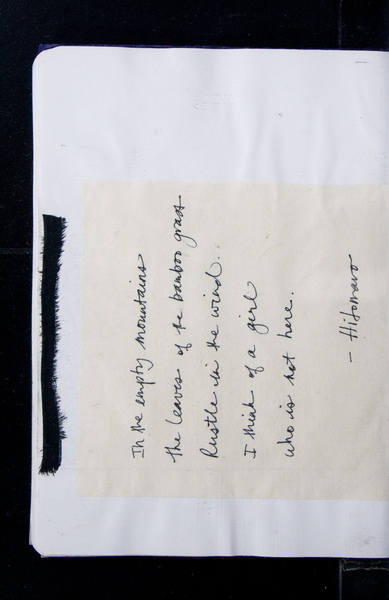 In the empty mountains
the leaves of the bamboo grass
Rustle in the wind..
I think of a girl
who is not here.
- Hitomaro